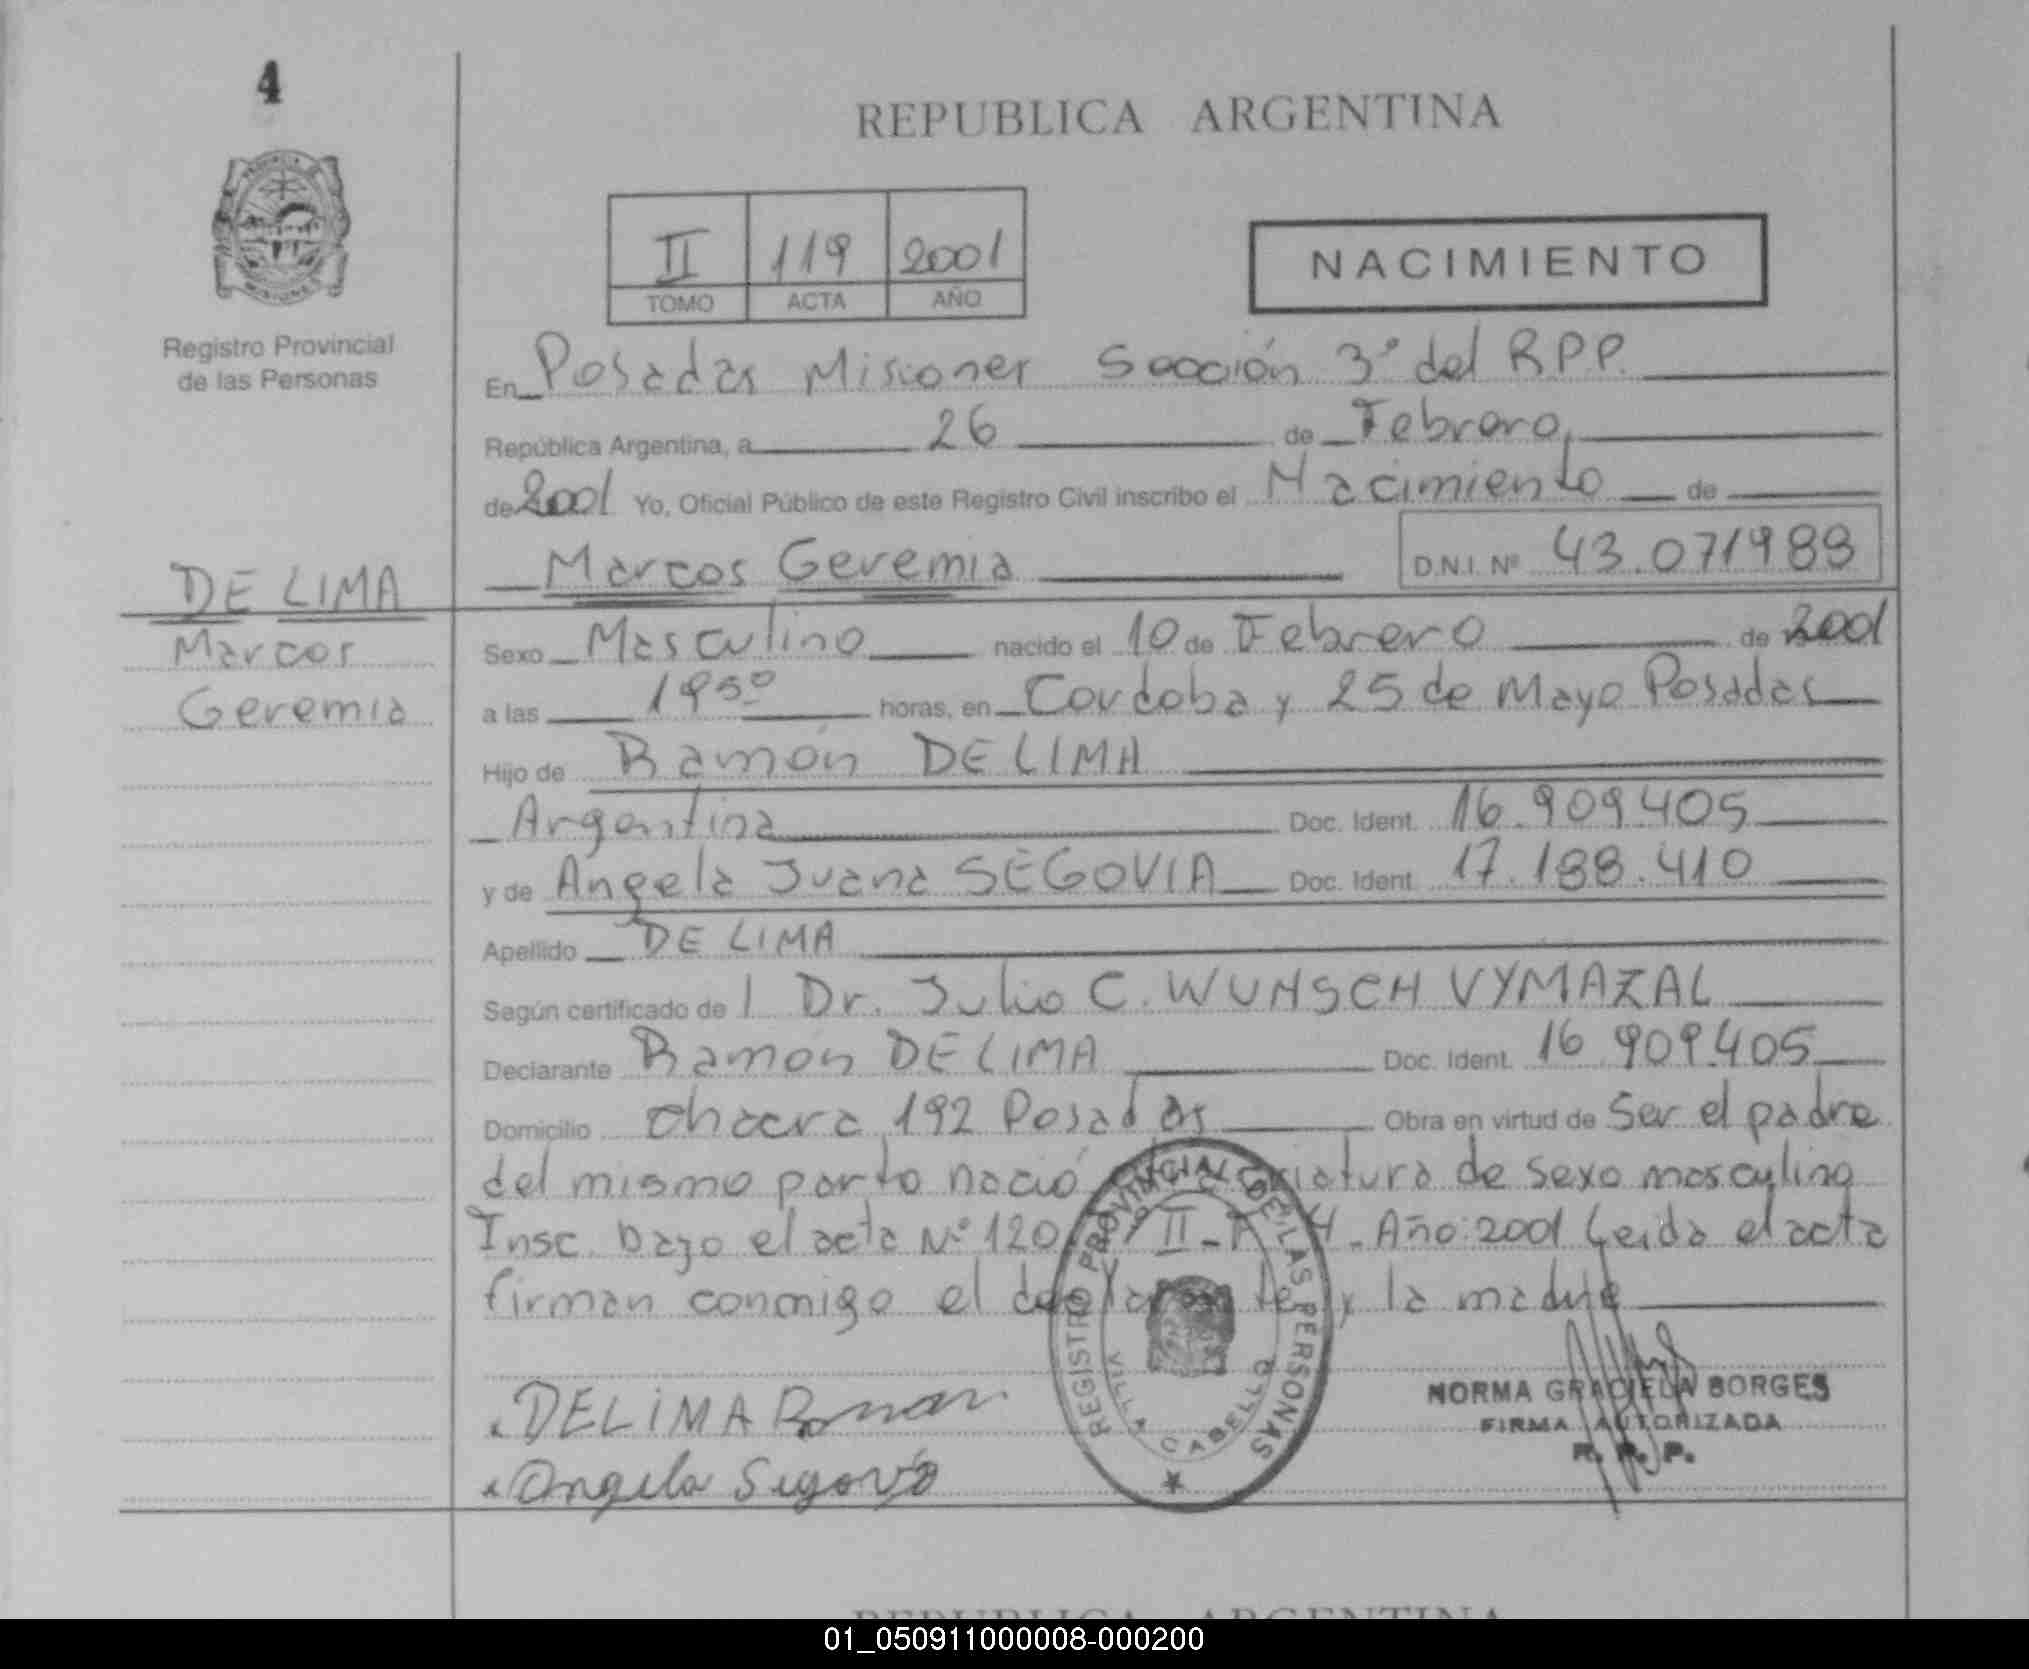 4
REPUBLICA ARGENTINA
PROVINCIA DE
MISIONES
II 119 2001
TOMO ACTA AÑO
NACIMIENTO
Registro Provincial
de las Personas
En Posadas Misiones Sección 3° del R.P.P.
República Argentina, a 26 de Febrero,
de 2001 Yo, Oficial Público de este Registro Civil inscribo el Nacimiento de
Marcos Geremia D.N.I. Nº 43.071988
DE LIMA
Marcos
Geremia
Sexo Masculino nacido el 10 de Febrero de 2001
a las 19⁵⁰ horas, en Cordoba y 25 de Mayo Posadas
Hijo de Ramón DE LIMA
Argentina Doc. Ident. 16.909.405
y de Angela Juana SEGOVIA Doc. Ident. 17.188.410
Apellido DE LIMA
Según certificado de l Dr. Julio C. WUNSCH VYMAZAL
Declarante Ramón DE LIMA Doc. Ident. 16.909.405
Domicilio chacra 192 Posadas Obra en virtud de Ser el padre
del mismo parto nació criatura de sexo masculino
Insc. bajo el acta Nº 120 II - Año: 2001 Leida el acta
firman conmigo el declarante y la madre
DE LIMA Ramon
Angela Segovia
REGISTRO PROVINCIAL DE LAS PERSONAS
VILLA CABELLO
NORMA GRACIELA BORGES
FIRMA AUTORIZADA
R. P. P.
REPUBLICA ARGENTINA
01_050911000008-000200